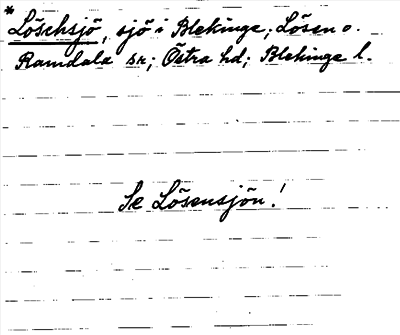 * Löschsjö, sjö i Blekinge; Lösen o.
Ramdala sr; Östra hd; Blekinge l.
Se Lösensjön!